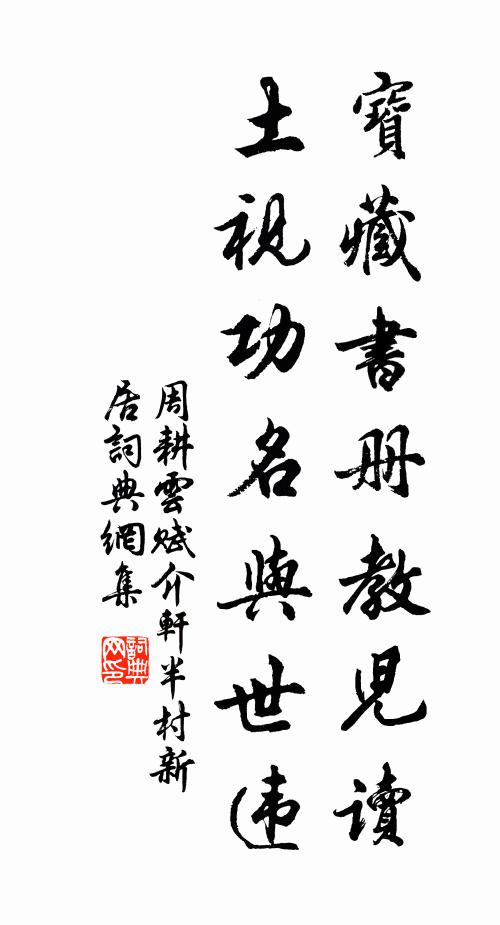 寶藏書册教兒讀
土視功名與世违
周耕雲赋介軒半村新
居詞典網集
詞典网印